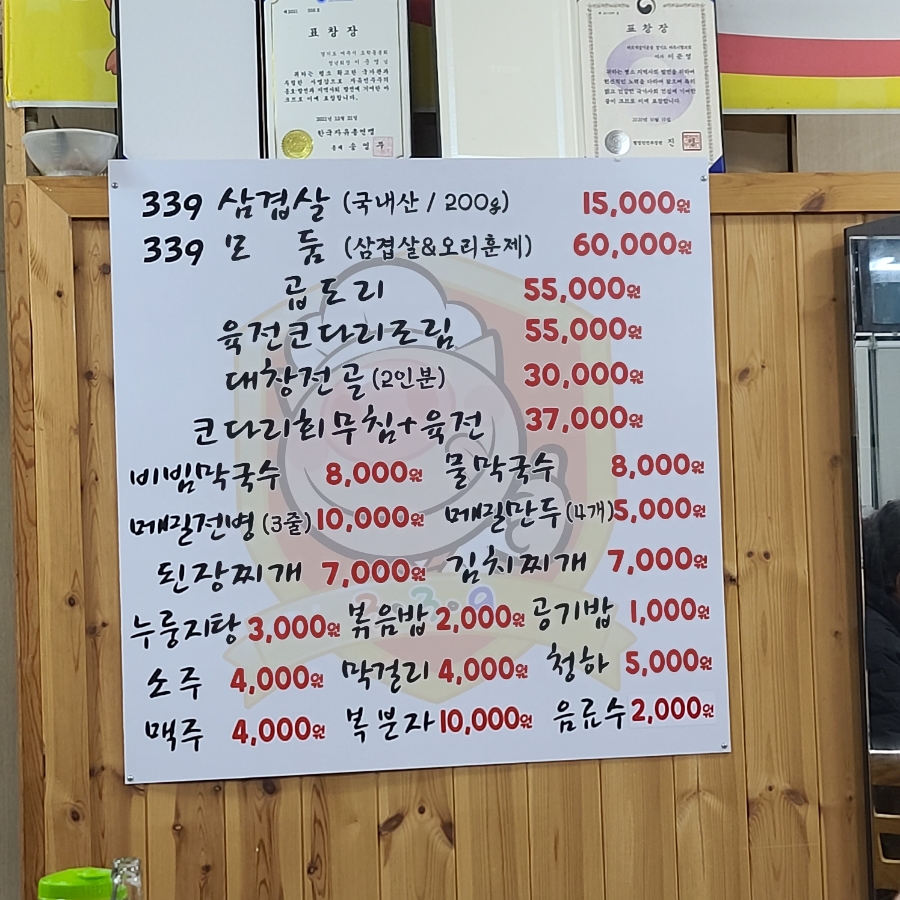 표 창 장
표 창 장
한국자유총연맹
339 삼겹살 (국내산 / 200g) 15,000원
339 모 둠 (삼겹살&오리훈제) 60,000원
곱도리 55,000원
육전코다리조림 55,000원
대창전골 (2인분) 30,000원
코다리회무침+육전 37,000원
비빔막국수 8,000원 물막국수 8,000원
메밀전병 (3줄) 10,000원 메밀만두 (4개) 5,000원
된장찌개 7,000원 김치찌개 7,000원
누룽지탕 3,000원 볶음밥 2,000원 공기밥 1,000원
소주 4,000원 막걸리 4,000원 청하 5,000원
맥주 4,000원 복분자 10,000원 음료수 2,000원